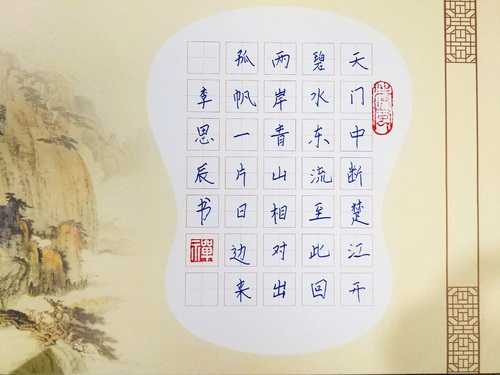 天门中断楚江开
碧水东流至此回
两岸青山相对出
孤帆一片日边来
李思辰书
禅